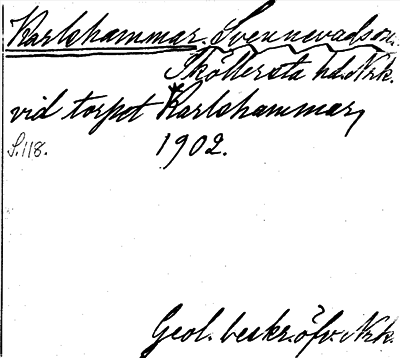 Karlshammar. Svennevadssn.
Sköllersta hd. Nrk.
vid torpet Karlshammar,
S. 118. 1902.
Geol. beskr. öfv. Nrk.